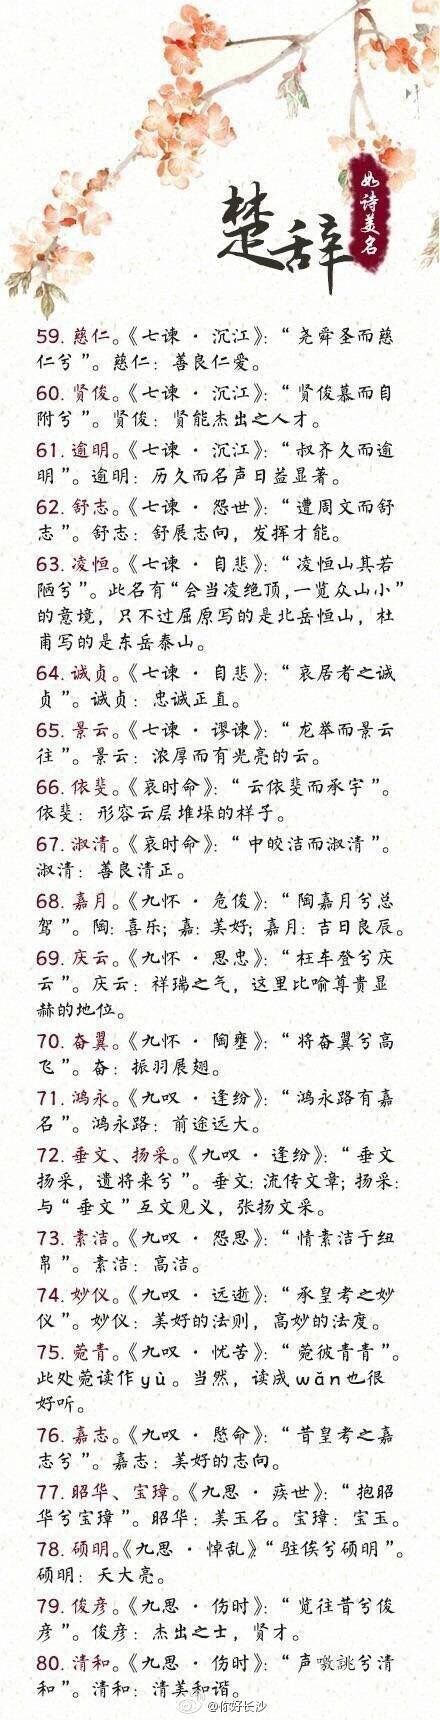 楚辞
如诗美名
59. 慈仁。《七谏 · 沉江》：“尧舜圣而慈
仁兮”。慈仁：善良仁爱。
60. 贤俊。《七谏 · 沉江》：“贤俊慕而自
附兮”。贤俊：贤能杰出之人才。
61. 逾明。《七谏 · 沉江》：“叔齐久而逾
明”。逾明：历久而名声日益显著。
62. 舒志。《七谏 · 怨世》：“遭周文而舒
志”。舒志：舒展志向，发挥才能。
63. 凌恒。《七谏 · 自悲》：“凌恒山其若
陋兮”。此名有“会当凌绝顶，一览众山小”
的意境，只不过屈原写的是北岳恒山，杜
甫写的是东岳泰山。
64. 诚贞。《七谏 · 自悲》：“哀居者之诚
贞”。诚贞：忠诚正直。
65. 景云。《七谏 · 谬谏》：“龙举而景云
往”。景云：浓厚而有光亮的云。
66. 依斐。《哀时命》：“云依斐而承宇”。
依斐：形容云层堆垛的样子。
67. 淑清。《哀时命》：“中皎洁而淑清”。
淑清：善良清正。
68. 嘉月。《九怀 · 危俊》：“陶嘉月兮总
驾”。陶：喜乐；嘉：美好；嘉月：吉日良辰。
69. 庆云。《九怀 · 思忠》：“枉车登兮庆
云”。庆云：祥瑞之气，这里比喻尊贵显
赫的地位。
70. 奋翼。《九怀 · 陶壅》：“将奋翼兮高
飞”。奋：振羽展翅。
71. 鸿永。《九叹 · 逢纷》：“鸿永路有嘉
名”。鸿永路：前途远大。
72. 垂文、扬采。《九叹 · 逢纷》：“垂文
扬采，遗将来兮”。垂文：流传文章；扬采：
与“垂文”互文见义，张扬文采。
73. 素洁。《九叹 · 怨思》：“情素洁于纽
帛”。素洁：高洁。
74. 妙仪。《九叹 · 远逝》：“承皇考之妙
仪”。妙仪：美好的法则，高妙的法度。
75. 菀青。《九叹 · 忧苦》：“菀彼青青”。
此处菀读作yù。当然，读成wǎn也很
好听。
76. 嘉志。《九叹 · 愍命》：“昔皇考之嘉
志兮”。嘉志：美好的志向。
77. 昭华、宝璋。《九思 · 疾世》：“抱昭
华兮宝璋”。昭华：美玉名。宝璋：宝玉。
78. 硕明。《九思 · 悼乱》：“驻俟兮硕明”。
硕明：天大亮。
79. 俊彦。《九思 · 伤时》：“览往昔兮俊
彦”。俊彦：杰出之士，贤才。
80. 清和。《九思 · 伤时》：“声噭誂兮清
和”。清和：清美和谐。
@你好长沙